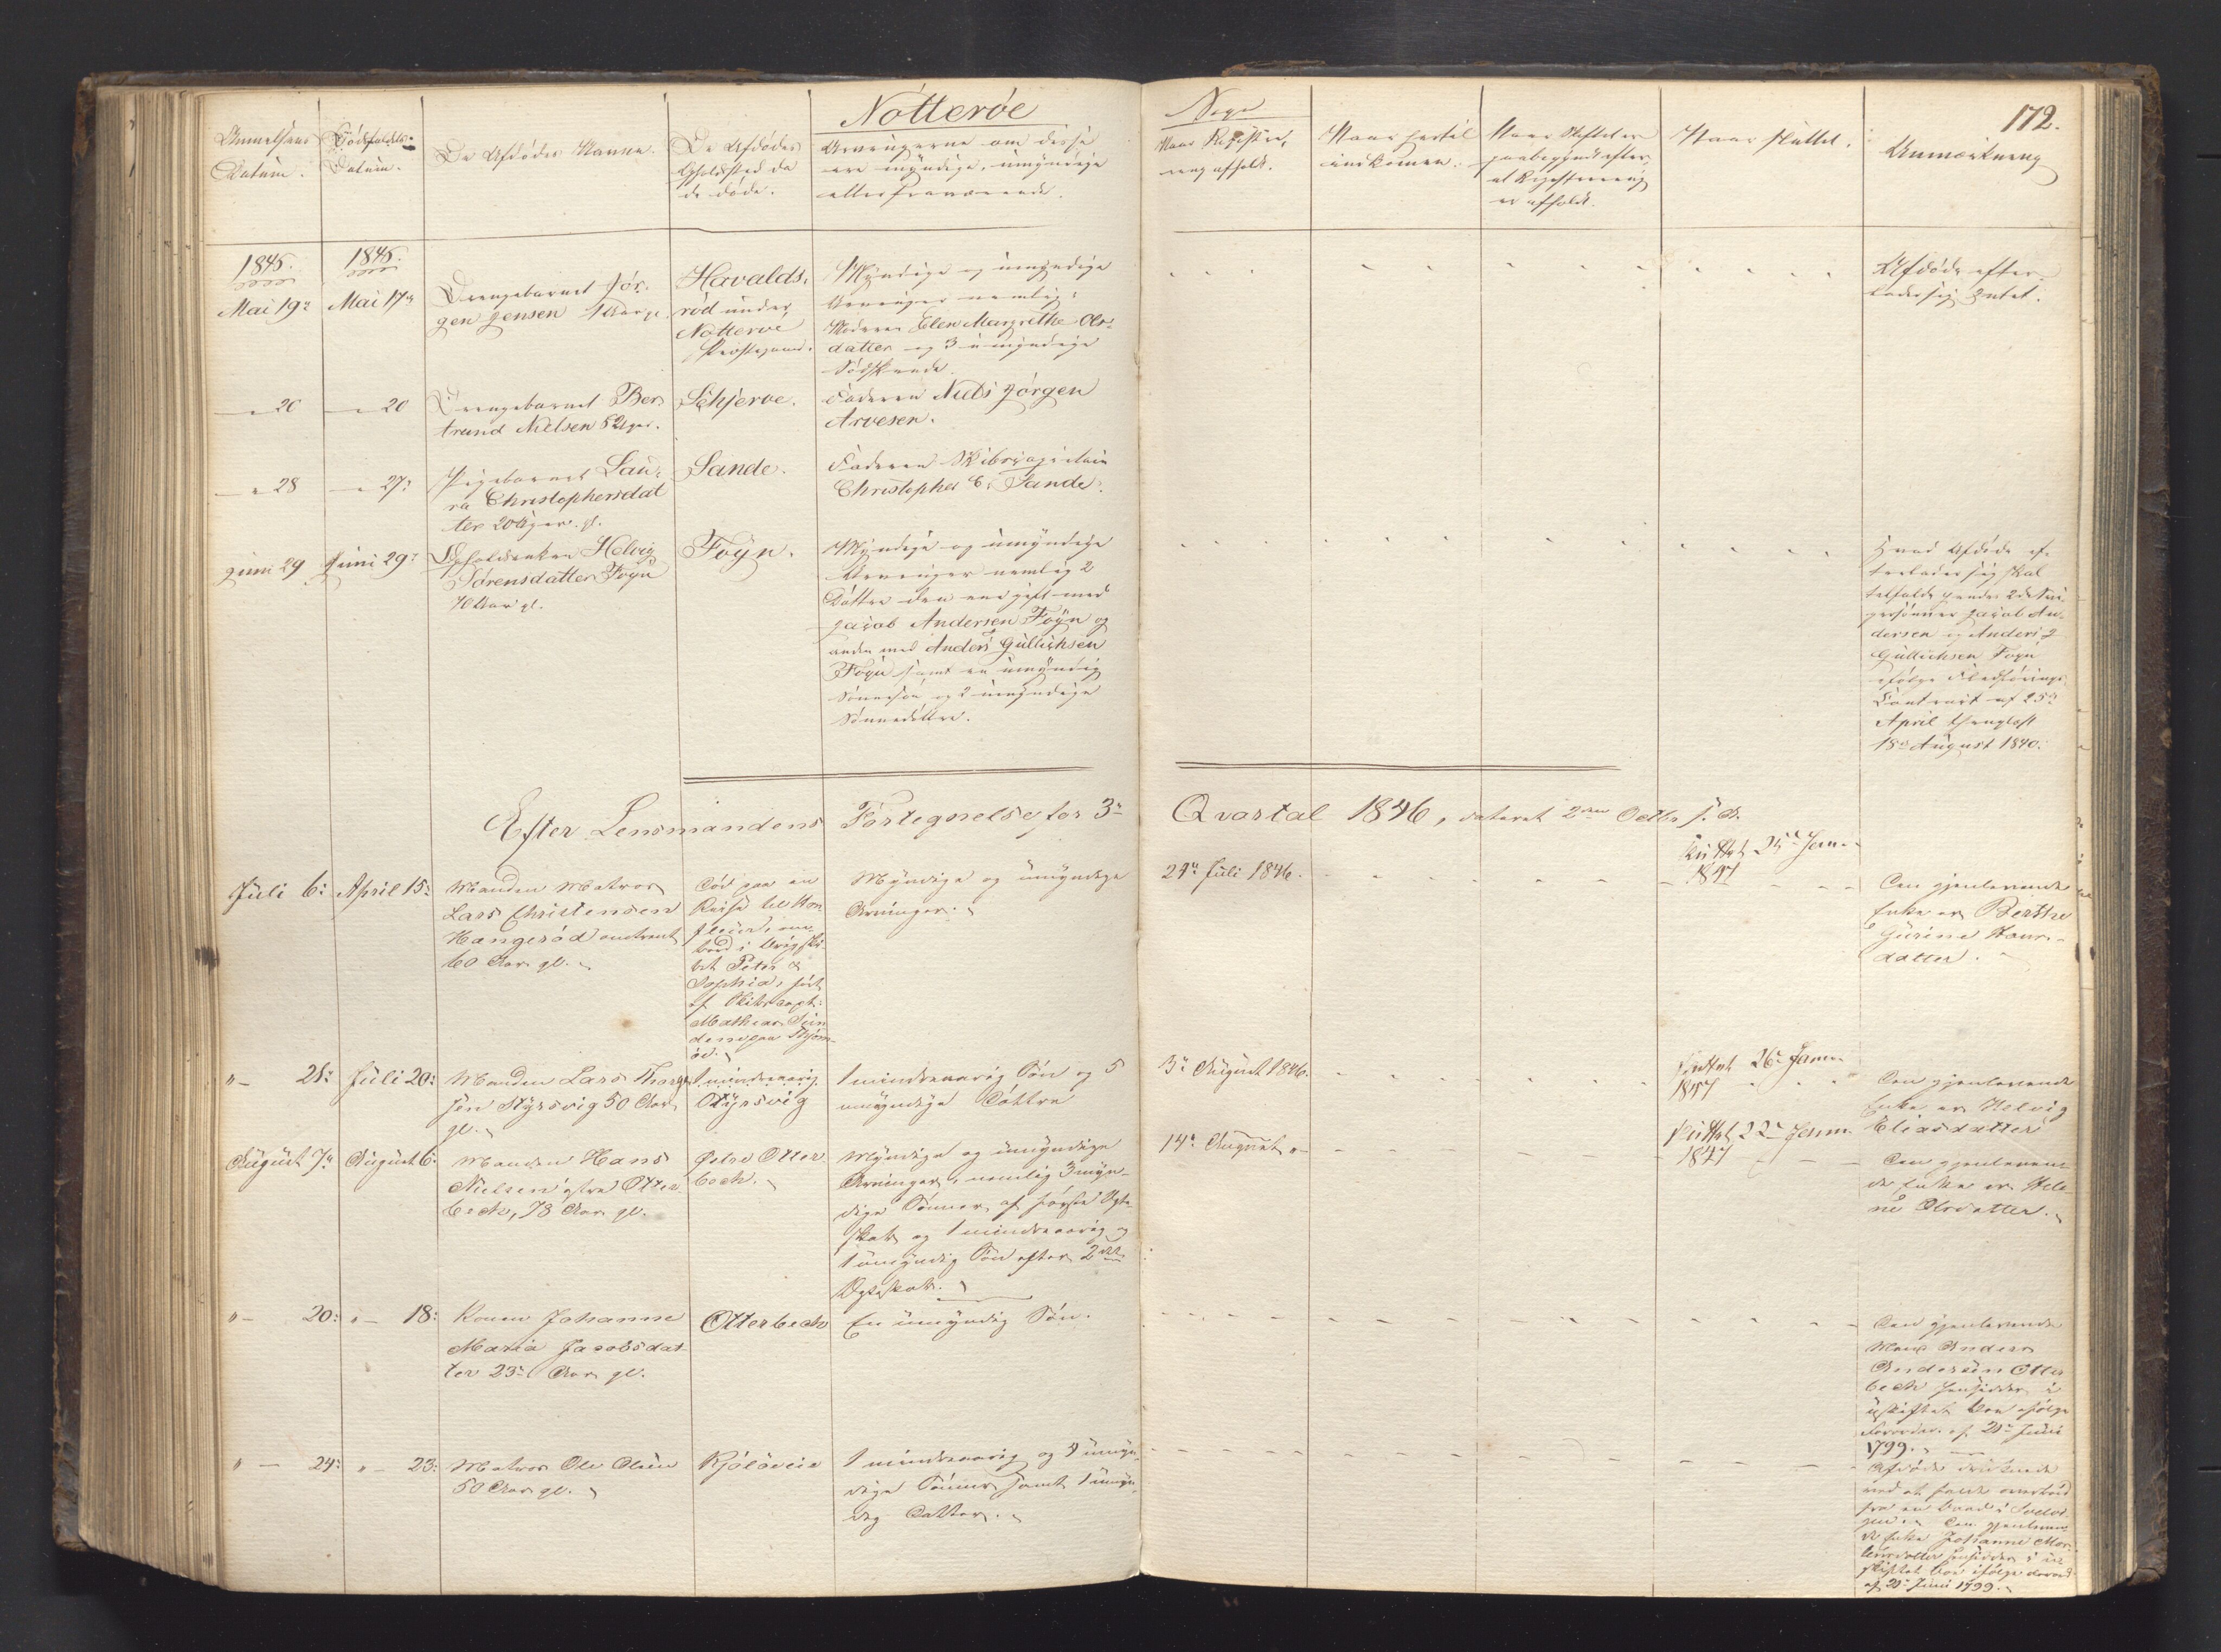 Nötteröe
Sogn
172.
Anmeldsens
Datum.
Dödsfaldets
Datum.
De Afdödes Navne.
De Afdödes
Opholdssted da
de döde.
Arvingerne om disse
ere myndige, umyndige
eller fraværende.
Naar Registre-
ring afholdt.
Naar hertil
indkommen.
Naar Skiftet er
paabegyndt efter
at Registrering
er afholdt.
Naar sluttet.
Anmærkning
1845.
1845.
Mai 19:
Mai 17:
Drengebarnet Jör-
gen Jensen 1 Aar gl.
Havalds-
röd under
Nötteröe
Præstegjæld.
Myndige og umyndige
Arvinger nemlig:
Moderen Elen Margrethe Ols-
datter og 3 umyndige
Södskende.
Afdöde efter-
lader sig Intet.
— " 20
— " 20
Drengebarnet Ber-
trand Nielsen 8 Uger.
Schjerve.
Faderen Niels Jörgen
Arvesen.
— " 28
— " 27:
Pigebarnet Lau-
ra Christophersdat
ter 20 Uger gl.
Sande.
Faderen Skibscapitain
Christopher C. Sande.
Juni 29
Juni 29:
Opholdsenken Helvig
Sörensdatter Föyn
70 Aar gl.
Föyn.
Myndige og umyndige
Arvinger nemlig 2
Döttre den ene gift med
Jacob Andersen Föyn og
anden med Anders Gullichsen
Föyn samt en umyndig
Sönnesön og 2 umyndige
Sönnedöttre.
Hvad Afdöde ef-
terlader sig skal
tilfalde hendes 2de Svi-
gersönner Jacob An-
dersen og Anders
Gullichsen Föyn
ifölge Flædförings
Contract af 25:
April thinglæst
18: August 1840.
Efter Lensmandens Fortegnelse for 3: Qvartal 1846, dateret 2den Octbr s. A.
Juli 6:
April 15:
Manden Matros
Lars Christensen
Hangeröd omtrent
60 Aar gl.
Död paa en
Reise til Hon
fleur, om-
bord i Brigski-
bet Peter &
Sophia, fört
af Skibscapt:
Mathias Sun
dene paa Tjöm-
öe.
Myndige og umyndige
Arvinger.
24: Juli 1846.
Sluttet 25: Janu.
1847
Den gjenlevende
Enke er Berthe
Gurine Hans-
datter.
" — 21:
Juli 20:
Manden Lars Thorge
sen Styrsvig 50 Aar
gl.
1 mindreaarig
Styrsvig
1 mindreaarig Sön og 5
umyndige Döttre
3: August 1846.
Sluttet 26: Janu.
1847
Den gjenlevende
Enke er Helvig
Eliasdatter
August 7:
August 6:
Manden Hans
Nielsen östre Otter
bech, 78 Aar gl.
Östre Otter
bech.
Myndige og umyndige
Arvinger, nemlig 3 myn-
dige Sönner af förste Ægte
skab og 1 mindreaarig og
1 umyndig Sön efter 2det
Ægteskab.
14: August " —
Sluttet 22: Janu.
1847
Den gjenleven-
de Enke er Hele
ne Olsdatter.
" — 20:
" — 18:
Konen Johanne
Maria Jacobsdat
ter 23: Aar gl.
Otterbech
En umyndig Sön.
Den gjenlevende
Mand Anders
Andersen Otter
bech hensidder i
uskiftet Boe ifölge
Forordn. af 21: Juni
1799.
" — 24:
" — 23:
Matros Ole Olsen
50 Aar gl.
Kjölöveie
1 mindreaarig og 4 umyn-
dige Sönner samt 1 umyn-
dig Datter.
Afdöde druknede
ved at falde overbord
fra en Baad i
Den gjenleven-
de Enke Johanne Mor-
tensdatter hensidder i u-
skiftet Boe ifölge Forord.
af 21: Juni 1799.